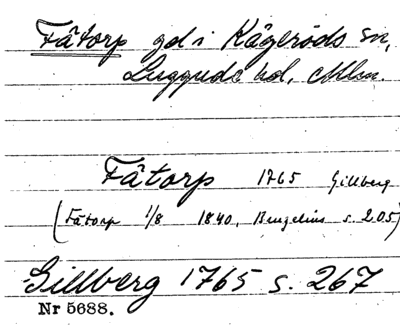 Fåtorp gd i Kågeröds sn,
Luggude hd, Mlm.
Fåtorp 1765 Gillberg
(Fåtorp 1/8 1840, Bengelius s. 205)
Gillberg 1765 s. 267
Nr 5688.